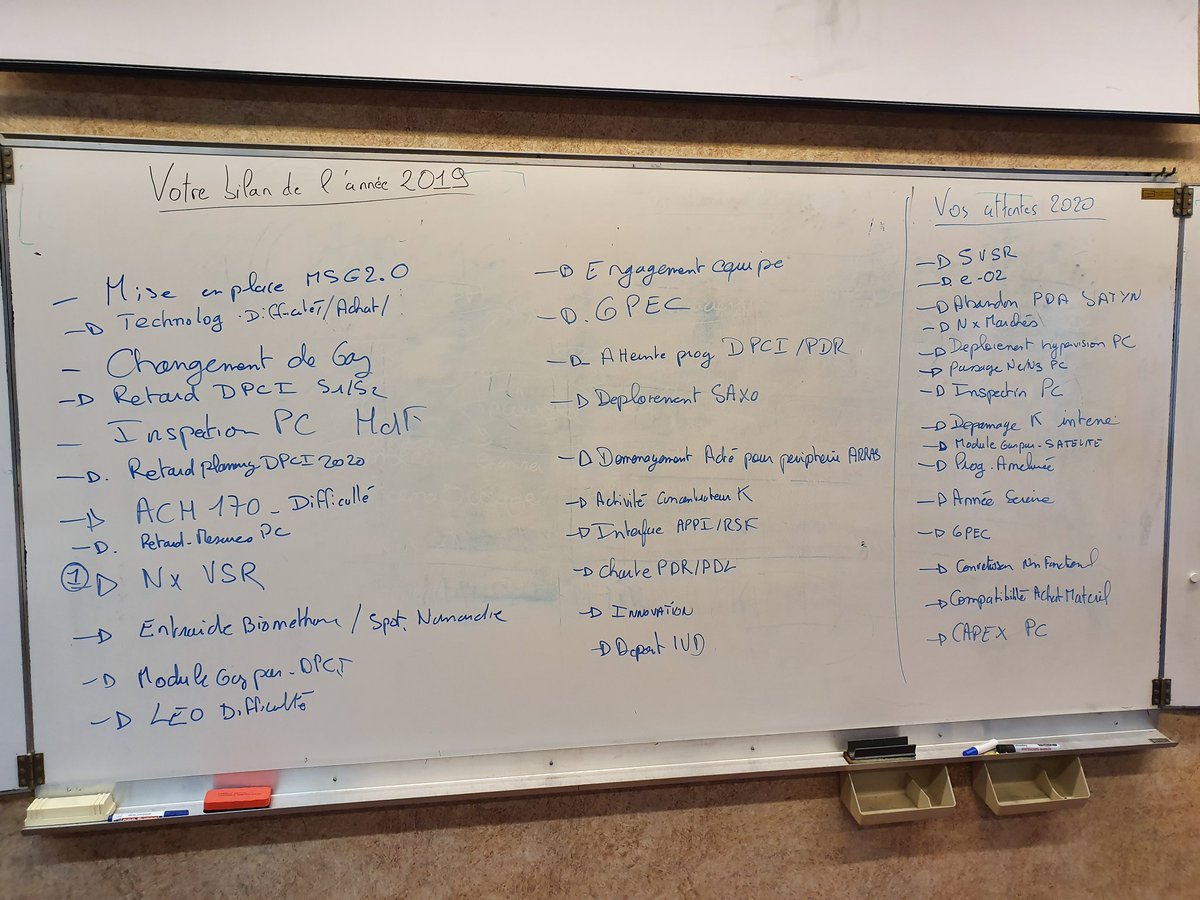 Votre bilan de l'année 2019
- Mise en place MSG2.0
→ Technolog. Difficulté/Achat/
- Changement de Gaz
→ Retard DPCI S1/S2
- Inspection PC
→ Retard planning DPCI 2020
→ ACH 170 - Difficulté
→ Retard-Mesures PC
① → Nx VSR
→ Entraide Biomethane / Spot. Normandie
→ Module Gazpar - DPCI
→ LEO Difficulté
→ Engagement equipe
→ GPEC
→ Atteinte prog DPCI/PDR
→ Deploiement SAXO
→ Demenagement Acté pour peripherie ARRAS
→ Activité Concentrateur K
→ Interface APPI/RSF
→ Charte PDR/PDL
→ INNOVATION
→ Depart IVD
Vos attentes 2020
→ SVSR
→ e-02
→ Abandon PDA SATYN
→ Nx Marchés
→ Deploiement hypervision PC
→ Passage PC
→ Inspection PC
→ Depannage K interne
→ Module Gazpar - SATELITE
→ Prog. Ameliorée
→ Année Sereine
→ GPEC
→ Non Fonctionnel
→ Compatibilité Achat Materiel
→ CAPEX PC